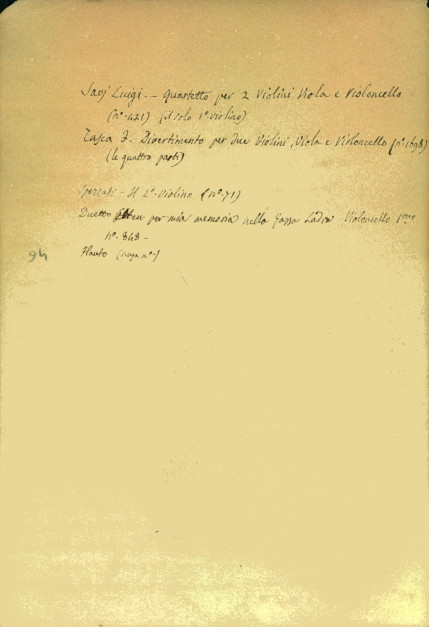 Savj Luigi -- Quartetto per 2 Violini Viola e Violoncello.
(nº. 421) (il solo 1º violino)
Tasca F. Divertimento per due Violini, Viola e Violoncello (nº 1698)
(le quattro parti)
Spezzati - Il 2º. Violino (nº. 71)
Duetto Ebben per mia memoria nella Gazza Ladra Violoncello
nº. 848 -
Flauto
94